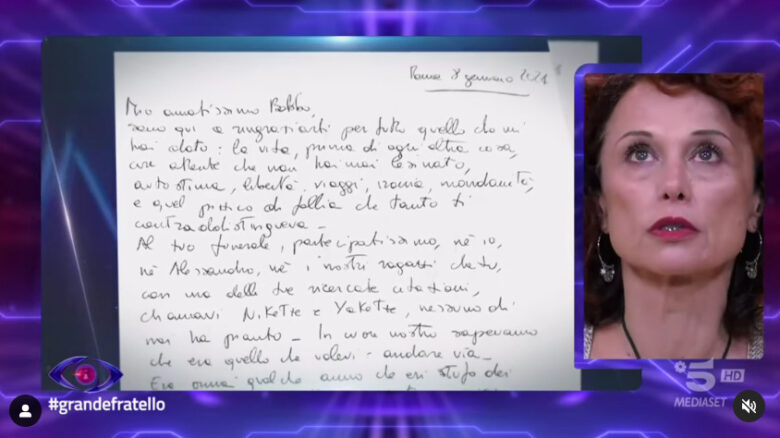 Roma 8 gennaio 2021
Mio amatissimo Babbo,
sono qui a ringraziarti per tutto quello che mi
hai dato: la vita, prima di ogni altra cosa,
cure attente che non hai mai lesinato,
autostima, libertà, viaggi, ironia, mondanità,
e quel pizzico di follia che tanto ti
contraddistingueva -
Al tuo funerale, partecipatissimo, nè io,
nè Alessandro, nè i nostri ragazzi che tu,
con una delle tue ricercate citazioni,
chiamavi Nikette e Yakette, nessuno di
noi ha pianto - In cuor nostro sapevamo
che era quello che volevi - andare via -
Era ormai qualche anno che eri stufo dei
#grandefratello
5 HD
MEDIASET